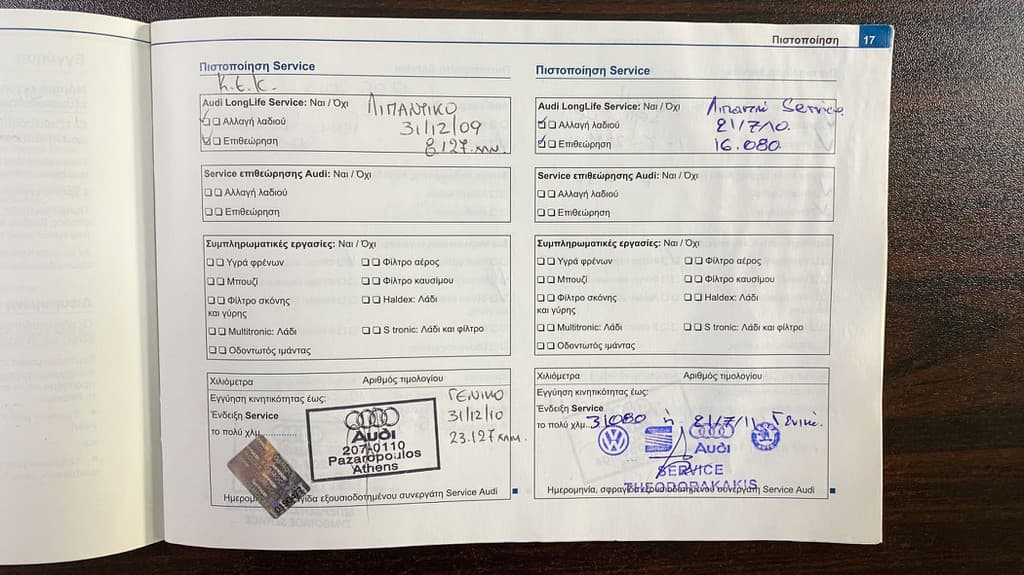 Πιστοποίηση 17
Πιστοποίηση Service
κ.ε.κ.
Audi LongLife Service: Ναι / Όχι ΛΙΠΑΝΤΙΚΟ
Αλλαγή λαδιού 31/12/09
Επιθεώρηση 8.127 χλμ.
Service επιθεώρησης Audi: Ναι / Όχι
Αλλαγή λαδιού
Επιθεώρηση
Συμπληρωματικές εργασίες: Ναι / Όχι
Υγρά φρένων Φίλτρο αέρος
Μπουζί Φίλτρο καυσίμου
Φίλτρο σκόνης Haldex: Λάδι
και γύρης
Multitronic: Λάδι S tronic: Λάδι και φίλτρο
Οδοντωτός ιμάντας
Χιλιόμετρα Αριθμός τιμολογίου
Εγγύηση κινητικότητας έως: ΓΕΝΙΚΟ
Ένδειξη Service 31/12/10
το πολύ χλμ............. 23.127 χλμ.
Audi
207-0110
Pazaropoulos
Athens
Ημερομ ίδα εξουσιοδοτημένου συνεργάτη Service Audi
Πιστοποίηση Service
Audi LongLife Service: Ναι / Όχι Service
Αλλαγή λαδιού 21/7/10.
Επιθεώρηση 16.080
Service επιθεώρησης Audi: Ναι / Όχι
Αλλαγή λαδιού
Επιθεώρηση
Συμπληρωματικές εργασίες: Ναι / Όχι
Υγρά φρένων Φίλτρο αέρος
Μπουζί Φίλτρο καυσίμου
Φίλτρο σκόνης Haldex: Λάδι
και γύρης
Multitronic: Λάδι S tronic: Λάδι και φίλτρο
Οδοντωτός ιμάντας
Χιλιόμετρα Αριθμός τιμολογίου
Εγγύηση κινητικότητας έως:
Ένδειξη Service
το πολύ χλμ. 31080 ή 21/7/11 Γενικό.
Audi
SERVICE
THEODORAKAKIS
Ημερομηνία, σφραγίδα εξουσιοδοτημένου συνεργάτη Service Audi